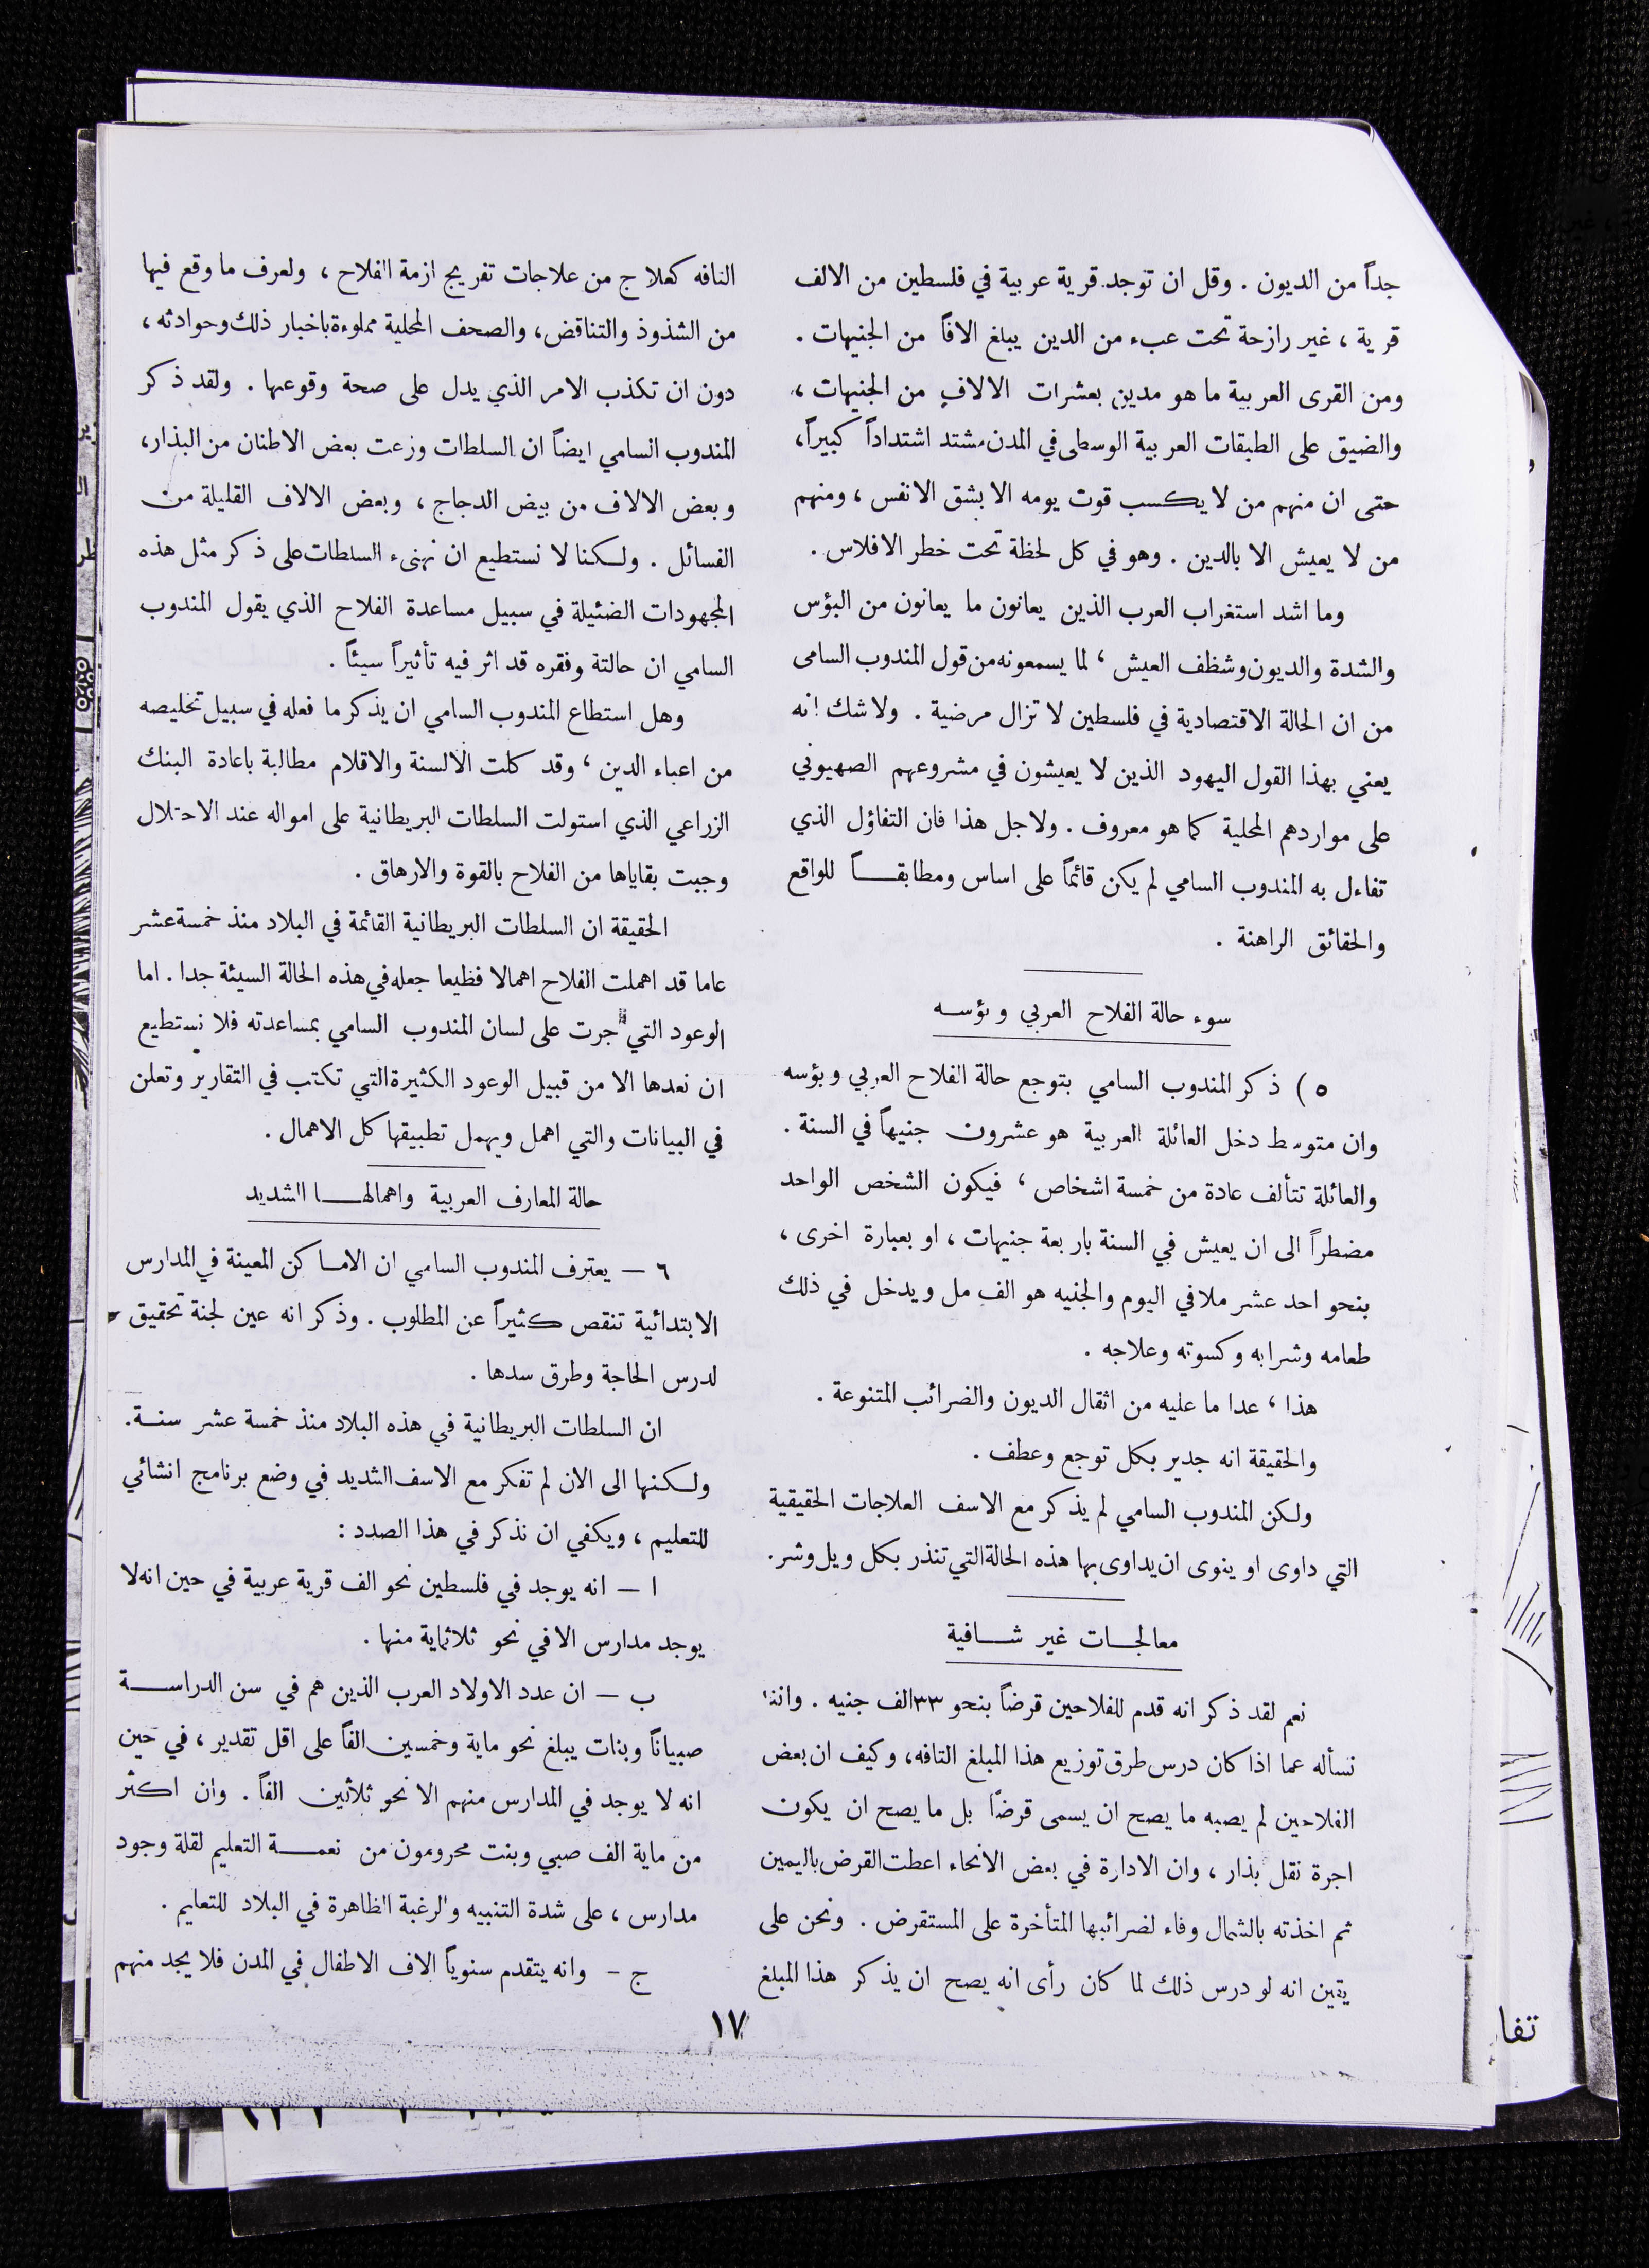 جداً من الديون . وقل ان توجد قرية عربية في فلسطين من الالف
قرية ، غير رازحة تحت عبء من الدين يبلغ الافاً من الجنيهات .
ومن القرى العربية ما هو مدين بعشرات الالاف من الجنيهات ،
والضيق على الطبقات العربية الوسطى في المدن مشتد اشتداداً كبيراً،
حتى ان منهم من لا يكسب قوت يومه الا بشق الانفس ، ومنهم
من لا يعيش الا بالدين . وهو في كل لحظة تحت خطر الافلاس .
وما اشد استغراب العرب الذين يعانون ما يعانون من البؤس
والشدة والديون وشظف العيش ، لما يسمعونه من قول المندوب السامى
من ان الحالة الاقتصادية في فلسطين لا تزال مرضية . ولا شك انه
يعني بهذا القول اليهود الذين لا يعيشون في مشروعهم الصهيوني
على مواردهم المحلية كما هو معروف . ولاجل هذا فان التفاؤل الذي
تفاءل به المندوب السامي لم يكن قائماً على اساس ومطابقـــاً للواقع
والحقائق الراهنة .
سوء حالة الفلاح العربي وبؤسه
٥ ) ذكر المندوب السامي بتوجع حالة الفلاح العربي وبؤسه
وان متوسط دخل العائلة العربية هو عشرون جنيهاً في السنة .
والعائلة تتألف عادة من خمسة اشخاص ، فيكون الشخص الواحد
مضطراً الى ان يعيش في السنة باربعة جنيهات ، او بعبارة اخرى ،
بنحو احد عشر ملا في اليوم والجنيه هو الف مل ويدخل في ذلك
طعامه وشرابه وكسوته وعلاجه .
هذا ، عدا ما عليه من اثقال الديون والضرائب المتنوعة .
والحقيقة انه جدير بكل توجع وعطف .
ولكن المندوب السامي لم يذكر مع الاسف العلاجات الحقيقية
التي داوى او ينوى ان يداوى بها هذه الحالة التي تنذر بكل ويل وشر.
معالجـــات غير شـــافية
نعم لقد ذكر انه قدم للفلاحين قرضاً بنحو ٣٣ الف جنيه . واننا
نسأله عما اذا كان درس طرق توزيع هذا المبلغ التافه، وكيف ان بعض
الفلاحين لم يصبه ما يصح ان يسمى قرضاً بل ما يصح ان يكون
اجرة نقل بذار ، وان الادارة في بعض الانحاء اعطت القرض باليمين
ثم اخذته بالشمال وفاء لضرائبها المتأخرة على المستقرض . ونحن على
يقين انه لو درس ذلك لما كان رأى انه يصح ان يذكر هذا المبلغ
التافه كعلاج من علاجات تفريج ازمة الفلاح ، ولعرف ما وقع فيها
من الشذوذ والتناقض، والصحف المحلية مملوءة باخبار ذلك وحوادثه ،
دون ان تكذب الامر الذي يدل على صحة وقوعها . ولقد ذكر
المندوب السامي ايضاً ان السلطات وزعت بعض الاطنان من البذار،
وبعض الالاف من بيض الدجاج ، وبعض الالاف القليلة من
الفسائل . ولكنا لا نستطيع ان نهنىء السلطات على ذكر مثل هذه
المجهودات الضئيلة في سبيل مساعدة الفلاح الذي يقول المندوب
السامي ان حالتة وفقره قد اثر فيه تأثيراً سيئاً .
وهل استطاع المندوب السامي ان يذكر ما فعله في سبيل تخليصه
من اعباء الدين ، وقد كلت الالسنة والاقلام مطالبة باعادة البنك
الزراعي الذي استولت السلطات البريطانية على امواله عند الاحتلال
وجبت بقاياها من الفلاح بالقوة والارهاق .
الحقيقة ان السلطات البريطانية القائمة في البلاد منذ خمسة عشر
عاما قد اهملت الفلاح اهمالا فظيعا جعله في هذه الحالة السيئة جدا . اما
الوعود التي جرت على لسان المندوب السامي بمساعدته فلا نستطيع
ان نعدها الا من قبيل الوعود الكثيرة التي تكتب في التقارير وتعلن
في البيانات والتي اهمل ويهمل تطبيقها كل الاهمال .
حالة المعارف العربية واهمالهـــا الشديد
٦ — يعترف المندوب السامي ان الاماكن المعينة في المدارس
الابتدائية تنقص كثيراً عن المطلوب . وذكر انه عين لجنة تحقيق
لدرس الحاجة وطرق سدها .
ان السلطات البريطانية في هذه البلاد منذ خمسة عشر سنـة.
ولكنها الى الان لم تفكر مع الاسف الشديد في وضع برنامج انشائي
للتعليم ، ويكفي ان نذكر في هذا الصدد :
ا — انه يوجد في فلسطين نحو الف قرية عربية في حين انه لا
يوجد مدارس الا في نحو ثلاثماية منها .
ب — ان عدد الاولاد العرب الذين هم في سن الدراســـة
صبياناً وبنات يبلغ نحو ماية وخمسين الفاً على اقل تقدير ، في حين
انه لا يوجد في المدارس منهم الا نحو ثلاثين الفاً . وان اكثر
من ماية الف صبي وبنت محرومون من نعمـــة التعليم لقلة وجود
مدارس ، على شدة التنبيه والرغبة الظاهرة في البلاد للتعليم .
ج — وانه يتقدم سنوياً الاف الاطفال في المدن فلا يجد منهم
١٧
تفا